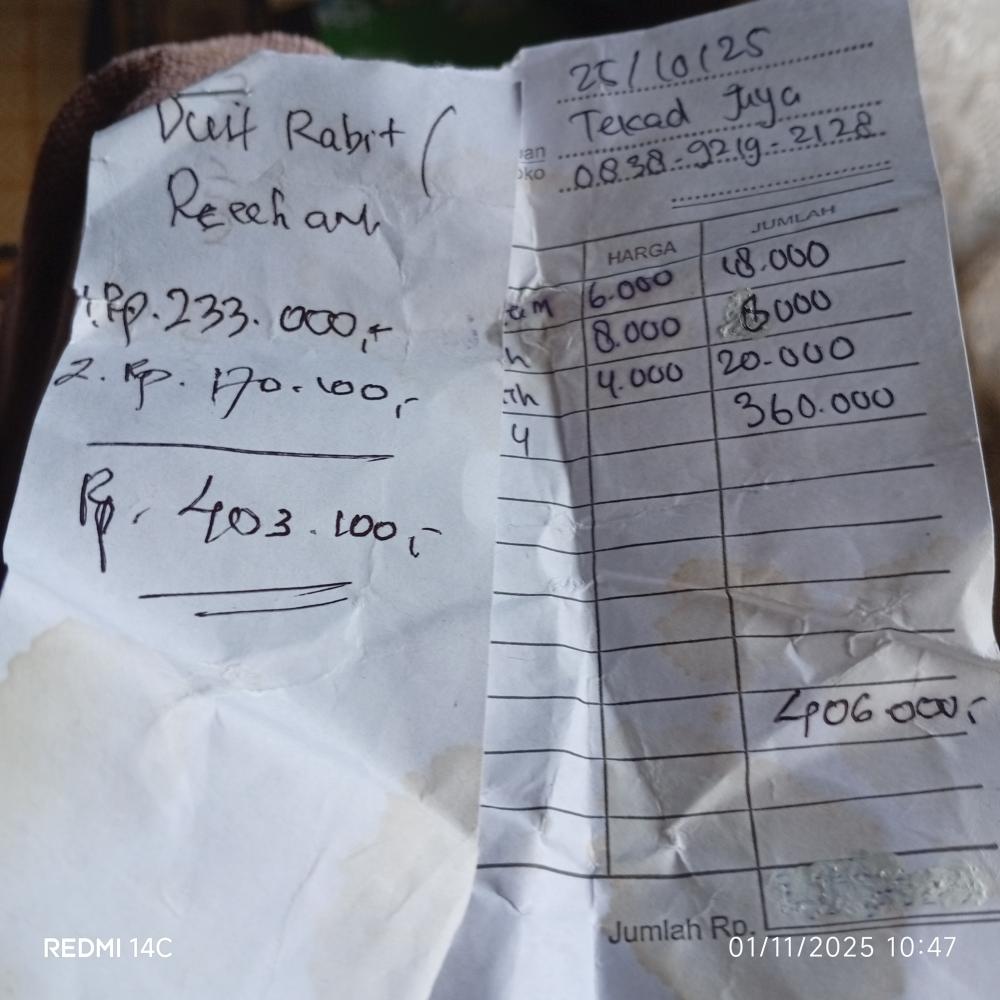 Duit Rabit (
Reehan
1. Rp. 233.000,+
2. Rp. 170.100,-
Rp. 403.100,-
25/10/25
Tekad Jaya
an
oko
0838-9219-2128
HARGA JUMLAH
6.000 18.000
h 8.000 8000
Th 4.000 20.000
4 360.000
406000,-
Jumlah Rp.
REDMI 14C
01/11/2025 10:47